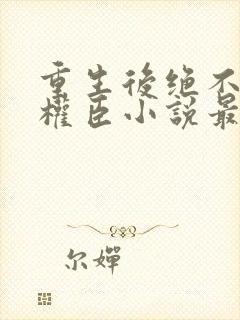 重生後绝不
權臣小說最
尔嬋